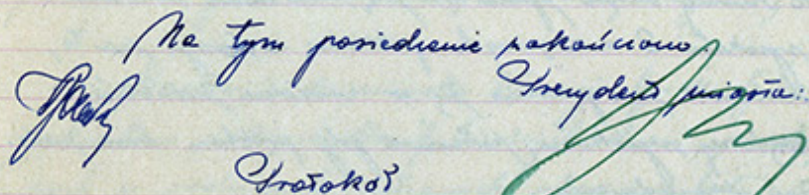 Na tym posiedzenie zakończono.
Prezydent miasta:
Protokół